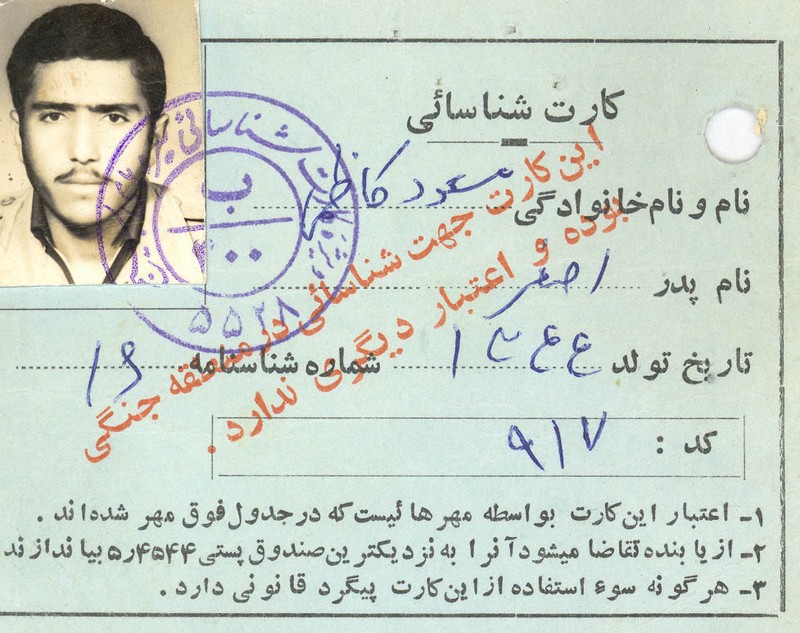 کارت شناسائی
نام و نام خانوادگی مسعود کاظم
نام پدر اصغر
تاریخ تولد ۱۳۴۴ شماره شناسنامه ۱۶
کد : ۹۱۷
۱- اعتبار این کارت بواسطه مهر هائیست که در جدول فوق مهر شده اند .
۲- از یابنده تقاضا میشود آنرا به نزدیکترین صندوق پستی ۵٫۴۵۴۴ بیاندازند
۳- هر گونه سوء استفاده از این کارت پیگرد قانونی دارد .
این کارت جهت شناسائی در منطقه جنگی
بوده و اعتبار دیگری ندارد .
شناسائی
ب
۴۰۰
۵۵۲۸